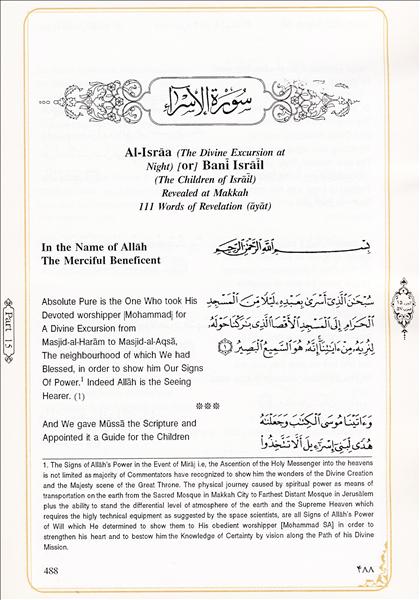 سورة الإسراء
Al-Isrāa (The Divine Excursion at
Night) [or] Bani Isrāīl
(The Children of Isrāīl)
Revealed at Makkah
111 Words of Revelation (āyāt)
In the Name of Allāh
The Merciful Beneficent
بِسْمِ اللَّهِ الرَّحْمَٰنِ الرَّحِيمِ
Absolute Pure is the One Who took His
Devoted worshipper [Mohammad] for
A Divine Excursion from
Masjid-al-Harām to Masjid-al-Aqsā,
The neighbourhood of which We had
Blessed, in order to show him Our Signs
Of Power.1 Indeed Allāh is the Seeing
Hearer. (1)
سُبْحَٰنَ الَّذِي أَسْرَىٰ بِعَبْدِهِ لَيْلًا مِّنَ الْمَسْجِدِ
الْحَرَامِ إِلَى الْمَسْجِدِ الْأَقْصَا الَّذِي بَٰرَكْنَا حَوْلَهُ
لِنُرِيَهُ مِنْ ءَايَٰتِنَا إِنَّهُ هُوَ السَّمِيعُ الْبَصِيرُ ﴿١﴾
***
And We gave Mūssā the Scripture and
Appointed it a Guide for the Children
وَءَاتَيْنَا مُوسَى الْكِتَٰبَ وَجَعَلْنَٰهُ
هُدًى لِّبَنِي إِسْرَٰٓءِيلَ أَلَّا تَتَّخِذُوا
1. The Signs of Allāh's Power in the Event of Mirāj i.e, the Ascention of the Holy Messenger into the heavens
is not limited as majority of Commentators have recognized to show him the wonders of the Divine Creation
and the Majesty scene of the Great Throne. The physical journey caused by spiritual power as means of
transportation on the earth from the Sacred Mosque in Makkah City to Farthest Distant Mosque in Jerusālem
plus the ability to stand the differential level of atmosphere of the earth and the Supreme Heaven which
requires the higly technical equipment as suggested by the space scientists, are all Signs of Allāh's Power
of Will which He determined to show them to His obedient worshipper [Mohammad SA] in order to
strengthen his heart and to bestow him the Knowledge of Certainty by vision along the Path of his Divine
Mission.
488
۴۸۸
Part 15